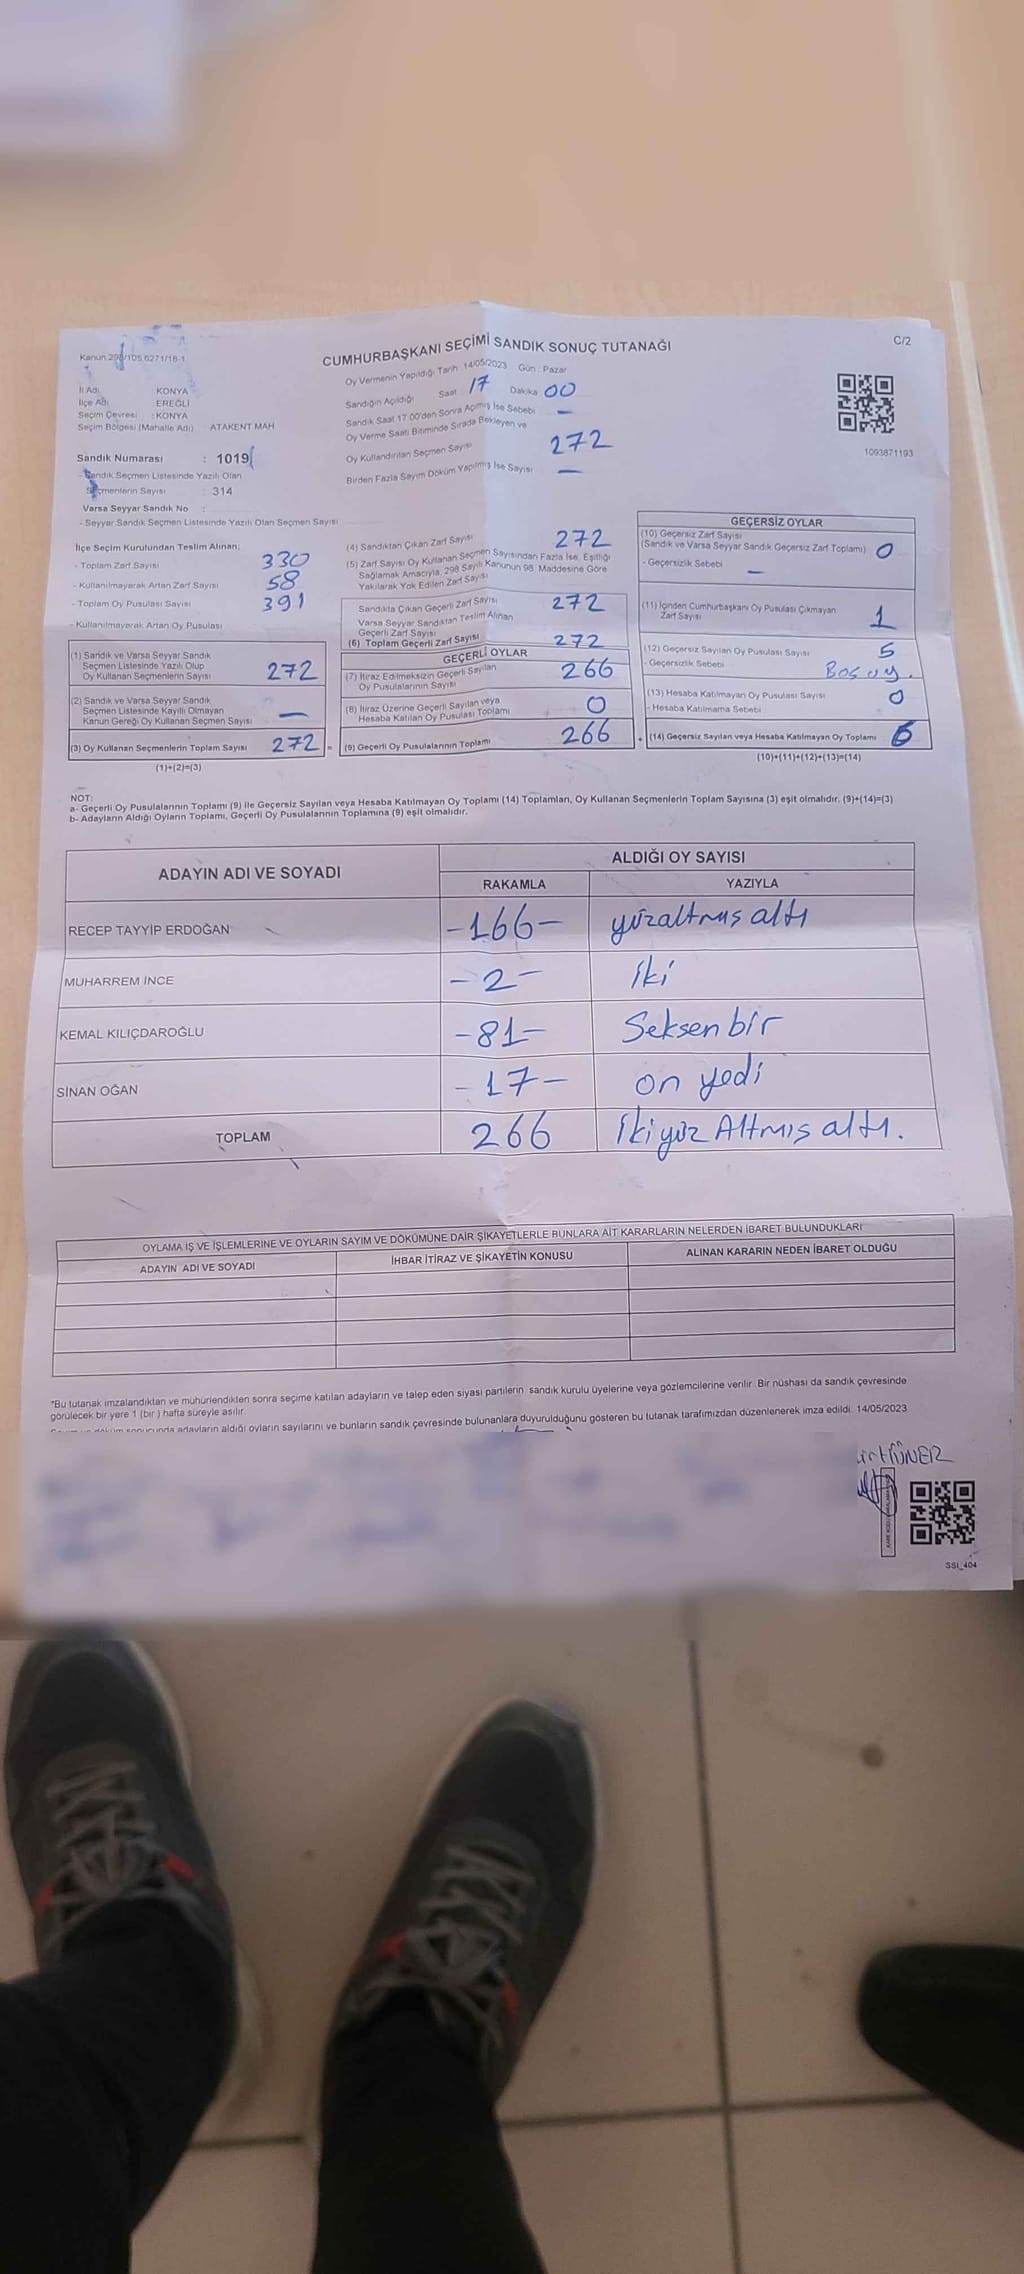 C/2
Kanun 298/105,6271/18-1
CUMHURBAŞKANI SEÇİMİ SANDIK SONUÇ TUTANAĞI
İl Adı KONYA
İlçe Adı EREĞLİ
Seçim Çevresi : KONYA
Seçim Bölgesi (Mahalle Adı) ATAKENT MAH
Sandık Numarası : 1019
Sandık Seçmen Listesinde Yazılı Olan
Seçmenlerin Sayısı : 314
Varsa Seyyar Sandık No :
- Seyyar Sandık Seçmen Listesinde Yazılı Olan Seçmen Sayısı
Oy Vermenin Yapıldığı Tarih 14/05/2023 Gün : Pazar
Sandığın Açıldığı Saat 17 Dakika 00
Sandık Saat 17.00'den Sonra Açılmış İse Sebebi —
Oy Verme Saati Bitiminde Sırada Bekleyen ve
Oy Kullandırılan Seçmen Sayısı 272
Birden Fazla Sayım Döküm Yapılmış İse Sayısı —
1093871193
İlçe Seçim Kurulundan Teslim Alınan;
- Toplam Zarf Sayısı 330
- Kullanılmayarak Artan Zarf Sayısı 58
- Toplam Oy Pusulası Sayısı 391
- Kullanılmayarak Artan Oy Pusulası
(1) Sandık ve Varsa Seyyar Sandık
Seçmen Listesinde Yazılı Olup
Oy Kullanan Seçmenlerin Sayısı 272
(2) Sandık ve Varsa Seyyar Sandık
Seçmen Listesinde Kayıtlı Olmayan
Kanun Gereği Oy Kullanan Seçmen Sayısı —
(3) Oy Kullanan Seçmenlerin Toplam Sayısı 272 =
(1)+(2)=(3)
(4) Sandıktan Çıkan Zarf Sayısı 272
(5) Zarf Sayısı Oy Kullanan Seçmen Sayısından Fazla İse, Eşitliği
Sağlamak Amacıyla, 298 Sayılı Kanunun 98. Maddesine Göre
Yakılarak Yok Edilen Zarf Sayısı
Sandıkta Çıkan Geçerli Zarf Sayısı 272
Varsa Seyyar Sandıktan Teslim Alınan
Geçerli Zarf Sayısı
(6) Toplam Geçerli Zarf Sayısı 272
GEÇERLİ OYLAR
(7) İtiraz Edilmeksizin Geçerli Sayılan
Oy Pusulalarının Sayısı 266
(8) İtiraz Üzerine Geçerli Sayılan veya
Hesaba Katılan Oy Pusulası Toplamı 0
(9) Geçerli Oy Pusulalarının Toplamı 266 +
GEÇERSİZ OYLAR
(10) Geçersiz Zarf Sayısı
(Sandık ve Varsa Seyyar Sandık Geçersiz Zarf Toplamı) 0
- Geçersizlik Sebebi —
(11) İçinden Cumhurbaşkanı Oy Pusulası Çıkmayan
Zarf Sayısı 1
(12) Geçersiz Sayılan Oy Pusulası Sayısı 5
- Geçersizlik Sebebi Boş oy.
(13) Hesaba Katılmayan Oy Pusulası Sayısı 0
- Hesaba Katılmama Sebebi
(14) Geçersiz Sayılan veya Hesaba Katılmayan Oy Toplamı 6
(10)+(11)+(12)+(13)=(14)
NOT:
a- Geçerli Oy Pusulalarının Toplamı (9) ile Geçersiz Sayılan veya Hesaba Katılmayan Oy Toplamı (14) Toplamları, Oy Kullanan Seçmenlerin Toplam Sayısına (3) eşit olmalıdır. (9)+(14)=(3)
b- Adayların Aldığı Oyların Toplamı, Geçerli Oy Pusulalarının Toplamına (9) eşit olmalıdır.
ADAYIN ADI VE SOYADI ALDIĞI OY SAYISI
RAKAMLA YAZIYLA
RECEP TAYYİP ERDOĞAN -166- yüzaltmış altı
MUHARREM İNCE -2- iki
KEMAL KILIÇDAROĞLU -81- Seksen bir
SİNAN OĞAN -17- on yedi
TOPLAM 266 İkiyüz Altmış altı.
OYLAMA İŞ VE İŞLEMLERİNE VE OYLARIN SAYIM VE DÖKÜMÜNE DAİR ŞİKAYETLERLE BUNLARA AİT KARARLARIN NELERDEN İBARET BULUNDUKLARI
ADAYIN ADI VE SOYADI İHBAR İTİRAZ VE ŞİKAYETİN KONUSU ALINAN KARARIN NEDEN İBARET OLDUĞU
*Bu tutanak imzalandıktan ve mühürlendikten sonra seçime katılan adayların ve talep eden siyasi partilerin sandık kurulu üyelerine veya gözlemcilerine verilir. Bir nüshası da sandık çevresinde
görülecek bir yere 1 (bir) hafta süreyle asılır.
sonucunda adayların aldığı oyların sayılarını ve bunların sandık çevresinde bulunanlara duyurulduğunu gösteren bu tutanak tarafımızdan düzenlenerek imza edildi. 14/05/2023
SSI_404